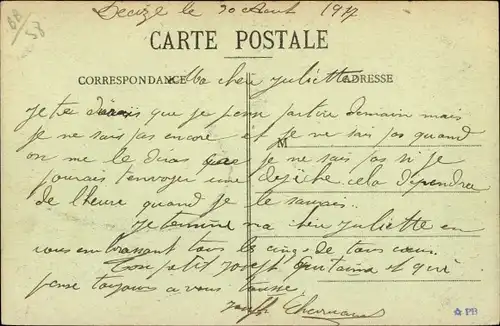 Decize le 30 Aout 1917
BB
53
CARTE POSTALE
CORRESPONDANCE
ADRESSE
Ma chère Juliette
Je te dirais que je pense partire demain mais
je ne sais pas encore et je ne sais pas quand
M
on me le diras que je ne sais pas si je
pourais t'envoyer une depêche cela dépendra
de l'heure quand je le saurais.
Je termine ma chère Juliette en
vous embrassant tous les cinq de tous cœur.
Ton petit Joseph qui t'aime et qui
pense toujours a vous tousse
Joseph
☆ PB